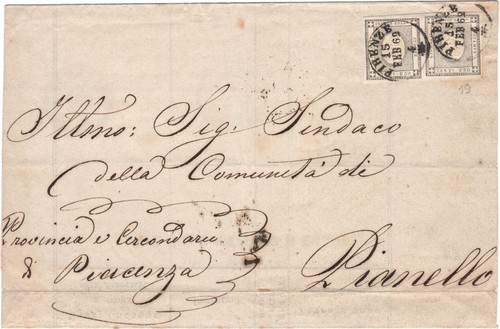 FIRENZE
15
FEB 69
4
FIRENZE
15
FEB 69
4
19
Illmo: Sig: Sindaco
della Comunità di
Provincia e Circondario
di Piacenza
Pianello